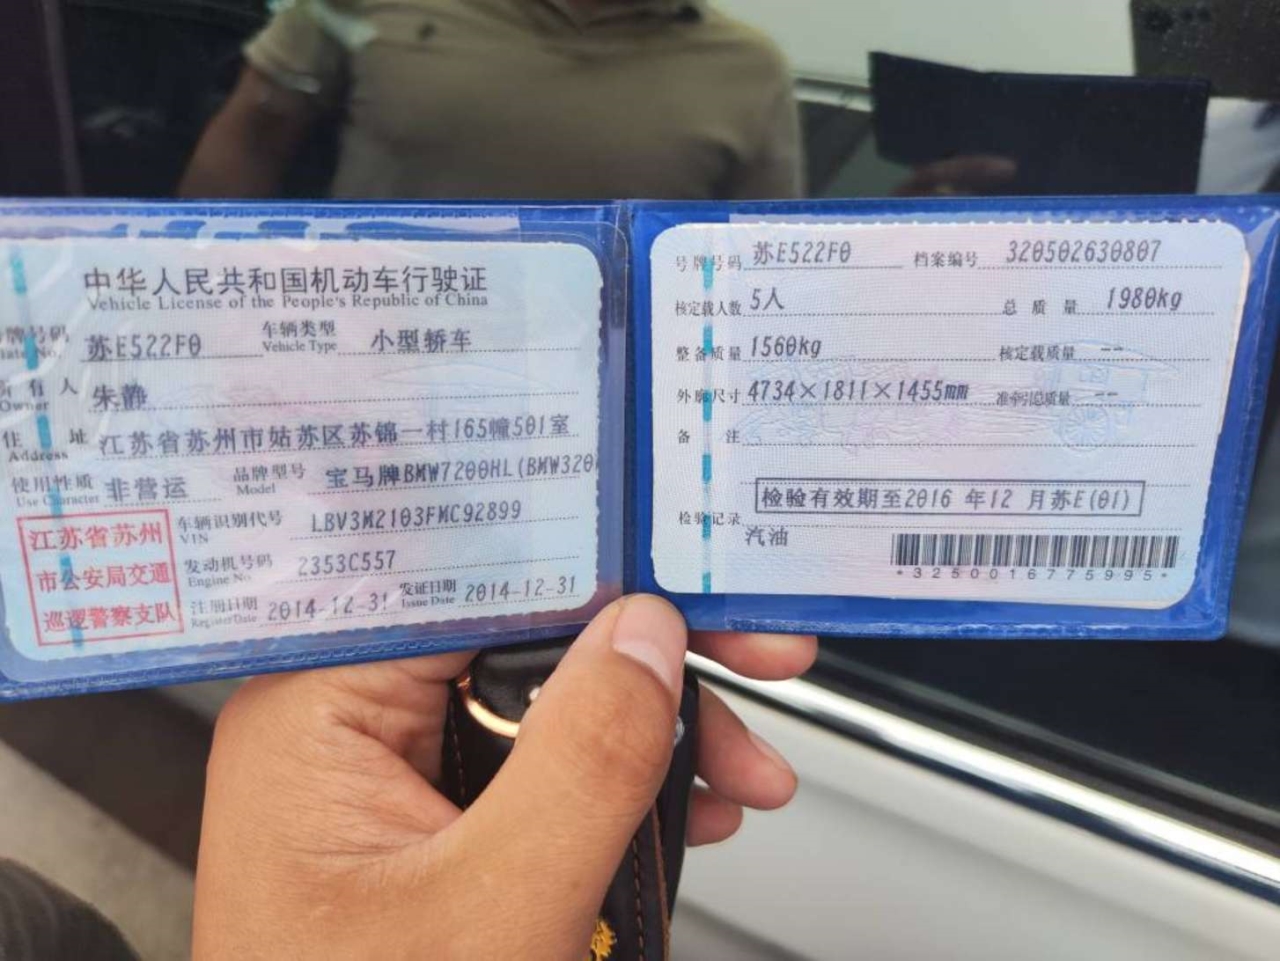 中华人民共和国机动车行驶证
Vehicle License of the People's Republic of China
号牌号码 苏E522F0 车辆类型 小型轿车
Plate No. Vehicle Type
所有人 朱静
Owner
住址 江苏省苏州市姑苏区苏锦一村165幢501室
Address
使用性质 非营运 品牌型号 宝马牌BMW7200HL(BMW320
Use Character Model
江苏省苏州
市公安局交通
巡逻警察支队
车辆识别代号 LBV3M2103FMC92899
VIN
发动机号码 2353C557
Engine No.
注册日期 2014-12-31 发证日期 2014-12-31
Register Date Issue Date
号牌号码 苏E522F0 档案编号 320502630807
核定载人数 5人 总质量 1980kg
整备质量 1560kg 核定载质量 --
外廓尺寸 4734×1811×1455mm 准牵引总质量 --
备注
检验有效期至2016 年12 月苏E(01)
检验记录
汽油
*3250016775995*